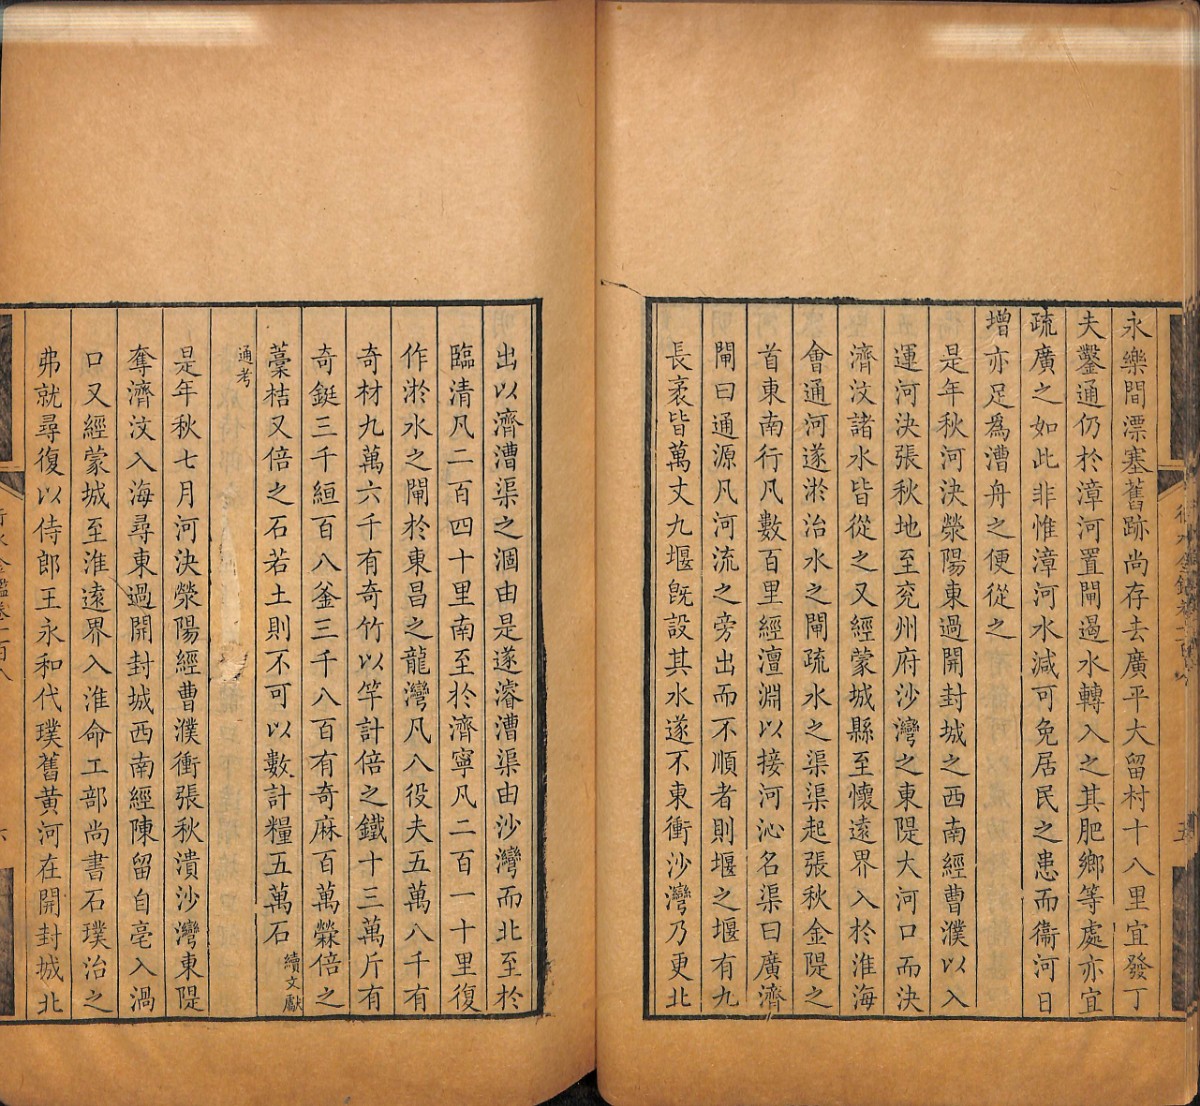 永樂間漂塞舊跡尚存去廣平大留村十八里宜發丁
夫鑿通仍於漳河置閘遏水轉入之其肥鄉等處亦宜
疏廣之如此非惟漳河水減可免居民之患而衞河日
增亦足爲漕舟之便從之
是年秋河決滎陽東過開封城之西南經曹濮以入
運河決張秋地至兖州府沙灣之東隄大河口而決
濟汶諸水皆從之又經蒙城縣至懷遠界入於淮海
會通河遂淤治水之閘疏水之渠渠起張秋金隄之
首東南行凡數百里經澶淵以接河沁名渠曰廣濟
閘曰通源凡河流之旁出而不順者則堰之堰有九
長袤皆萬丈九堰旣設其水遂不東衝沙灣乃更北
出以濟漕渠之涸由是遂濬漕渠由沙灣而北至於
臨清凡二百四十里南至於濟寧凡二百一十里復
作淤水之閘於東昌之龍灣凡八役夫五萬八千有
奇材九萬六千有奇竹以竿計倍之鐵十三萬斤有
奇鋌三千絙百八釜三千八百有奇麻百萬檾倍之
藁桔又倍之石若土則不可以數計糧五萬石續文獻
通考
是年秋七月河決滎陽經曹濮衝張秋潰沙灣東隄
奪濟汶入海尋東過開封城西南經陳留自亳入渦
口又經蒙城至淮遠界入淮命工部尚書石璞治之
弗就尋復以侍郎王永和代璞舊黄河在開封城北
行水金鑑卷一百八